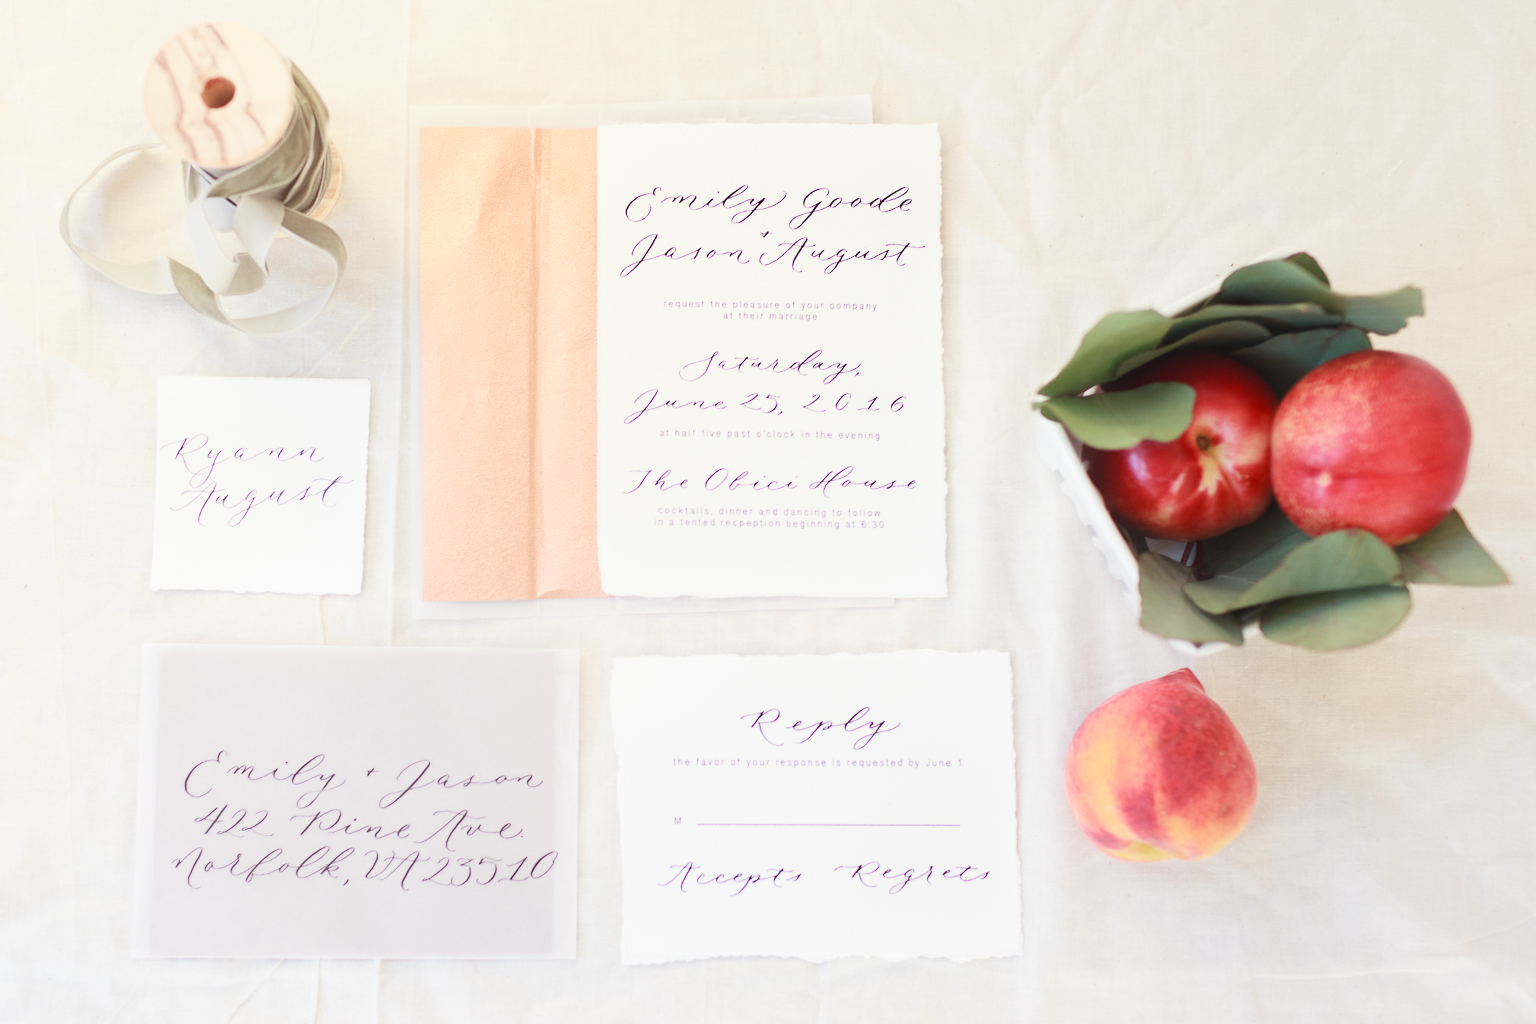 Emily Goode
+
Jason August
request the pleasure of your company
at their marriage
Saturday,
June 25, 2016
at half five past o'clock in the evening
The Obici House
cocktails, dinner and dancing to follow
in a tented recpeption beginning at 6:30
Ryann
August
Emily + Jason
422 Pine Ave.
Norfolk, VA 23510
Reply
the favor of your response is requested by June 1
M
Accepts Regrets